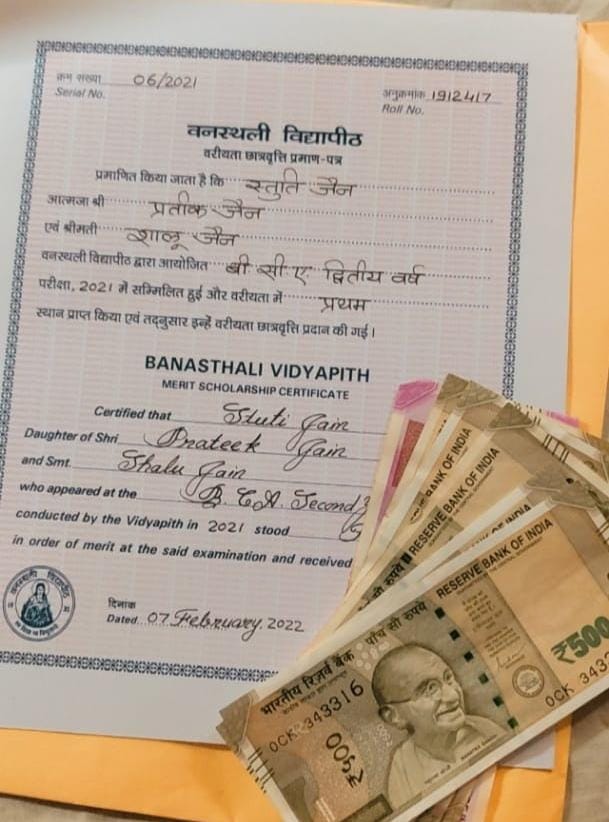 क्रम संख्या 06/2021
Serial No.
अनुक्रमांक 1912417
Roll No.
वनस्थली विद्यापीठ
वरीयता छात्रवृत्ति प्रमाण-पत्र
प्रमाणित किया जाता है कि स्तुति जैन
आत्मजा श्री प्रतीक जैन
एवं श्रीमती शालू जैन
वनस्थली विद्यापीठ द्वारा आयोजित बी सी ए द्वितीय वर्ष
परीक्षा, 2021 में सम्मिलित हुई और वरीयता में प्रथम
स्थान प्राप्त किया एवं तद्नुसार इन्हें वरीयता छात्रवृत्ति प्रदान की गई।
BANASTHALI VIDYAPITH
MERIT SCHOLARSHIP CERTIFICATE
Certified that Stuti Jain
Daughter of Shri Prateek Jain
and Smt. Shalu Jain
who appeared at the B.C.A. Second
conducted by the Vidyapith in 2021 stood
in order of merit at the said examination and received
दिनांक
Dated 07 February, 2022
BANK OF INDIA
RESERVE BANK OF INDIA
OF INDIA
RESERVE BANK OF INDIA
भारतीय रिज़र्व बैंक
पाँच सौ रुपये
0CK 343316
₹500
₹500
0CK 343